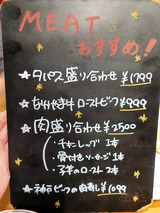 MEAT
おすすめ!
★タパス盛り合わせ ¥1799
★なみやき牛 ローストビーフ ¥999
★肉盛り合わせ ¥2500
・チキンレッグ 1本
・骨付きソーセージ 1本
・3種のロースト 2本
★神戸ビーフの ¥1099